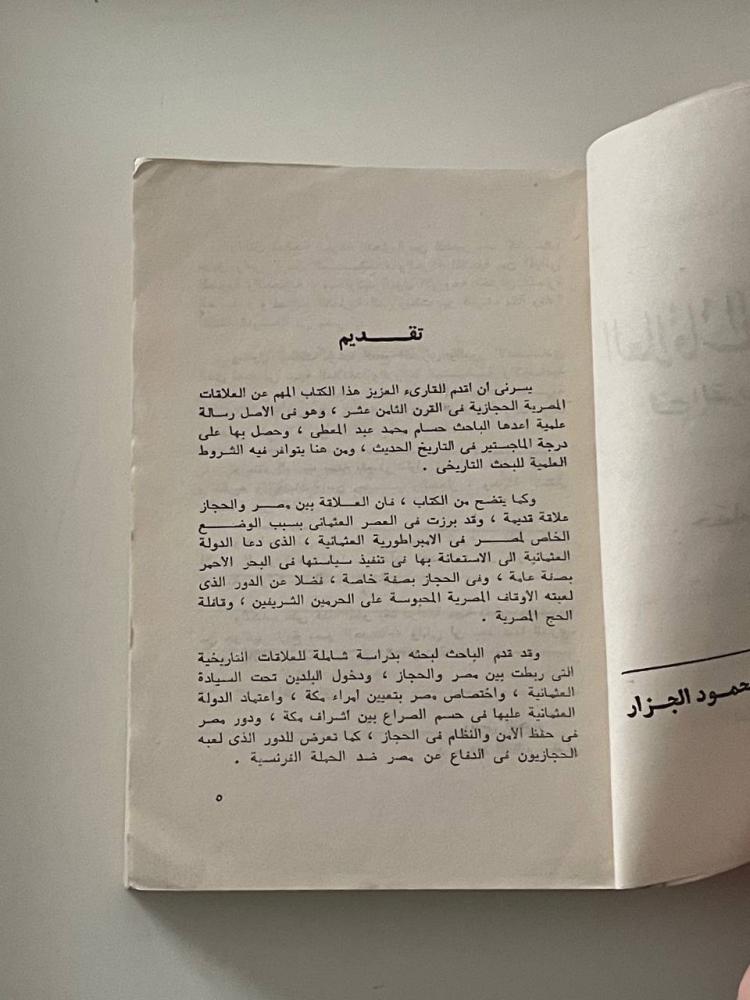 تقـــديم
يسرنى ان اقدم للقارىء العزيز هذا الكتاب المهم عن العلاقات
المصرية الحجازية فى القرن الثامن عشر ، وهو فى الاصل رسالة
علمية اعدها الباحث حسام محمد عبد المعطى ، وحصل بها على
درجة الماجستير فى التاريخ الحديث ، ومن هنا يتوافر فيه الشروط
العلمية للبحث التاريخى .
وكما يتضح من الكتاب ، فان العلاقة بين مصر والحجاز
علاقة قديمة ، وقد برزت فى العصر العثمانى بسبب الوضع
الخاص لمصر فى الامبراطورية العثمانية ، الذى دعا الدولة
العثمانية الى الاستعانة بها فى تنفيذ سياستها فى البحر الاحمر
بصفة عامة ، وفى الحجاز بصفة خاصة ، فضلا عن الدور الذى
لعبته الأوقاف المصرية المحبوسة على الحرمين الشريفين ، وقافلة
الحج المصرية .
وقد قدم الباحث لبحثه بدراسة شاملة للعلاقات التاريخية
التى ربطت بين مصر والحجاز ، ودخول البلدين تحت السيادة
العثمانية ، واختصاص مصر بتعيين امراء مكة ، واعتماد الدولة
العثمانية عليها فى حسم الصراع بين اشراف مكة ، ودور مصر
فى حفظ الأمن والنظام فى الحجاز ، كما تعرض للدور الذى لعبه
الحجازيون فى الدفاع عن مصر ضد الحملة الفرنسية .
٥
حمود الجزار